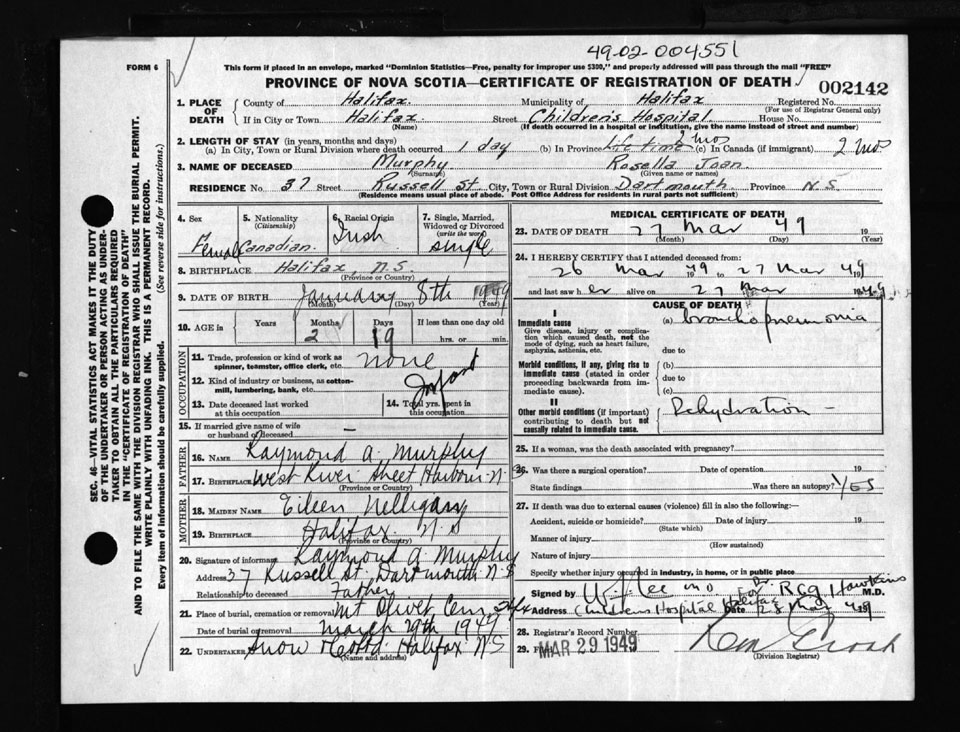 49-02-004551
FORM 6
This form if placed in an envelope, marked "Dominion Statistics—Free, penalty for improper use $300," and properly addressed will pass through the mail "FREE"
PROVINCE OF NOVA SCOTIA—CERTIFICATE OF REGISTRATION OF DEATH
002142
1. PLACE OF DEATH County of Halifax. Municipality of Halifax Registered No.
(For use of Registrar General only)
If in City or Town Halifax. Street Children's Hospital. House No.
(Name) (If death occurred in a hospital or institution, give the name instead of street and number)
2. LENGTH OF STAY (in years, months and days)
(a) In City, Town or Rural Division where death occurred 1 day (b) In Province Life time 2 mos (c) In Canada (if immigrant) 2 mos
3. NAME OF DECEASED Murphy Rosella Joan.
(Surname) (Given name or names)
RESIDENCE No. 37 Street Russell St. City, Town or Rural Division Dartmouth. Province N.S
(Residence means usual place of abode. Post Office Address for residents in rural parts not sufficient)
4. Sex Female
5. Nationality (Citizenship) Canadian.
6. Racial Origin Irish
7. Single, Married, Widowed or Divorced (write the word) single
8. BIRTHPLACE Halifax N.S.
(Province or Country)
9. DATE OF BIRTH January 8th 1949
(Month) (Day) (Year)
10. AGE in Years Months 2 Days 19 If less than one day old
hrs. or min.
OCCUPATION
11. Trade, profession or kind of work as spinner, teamster, office clerk, etc. none
12. Kind of industry or business, as cotton-mill, lumbering, bank, etc.
Infant
13. Date deceased last worked at this occupation
14. Total yrs. spent in this occupation
15. If married give name of wife or husband of deceased —
FATHER
16. NAME Raymond A. Murphy
17. BIRTHPLACE West River Sheet Harbour N-S
(Province or Country)
MOTHER
18. MAIDEN NAME Eileen
19. BIRTHPLACE Halifax. N.S
(Province or Country)
20. Signature of informant Raymond A. Murphy
Address 37 Russell St. Dartmouth N-S
Relationship to deceased Father
21. Place of burial, cremation or removal Mt Olivet Cem
Date of burial or removal March 29th 1949
22. UNDERTAKER Snow Halifax NS
(Name and address)
MEDICAL CERTIFICATE OF DEATH
23. DATE OF DEATH 27 Mar 49 19
(Month) (Day) (Year)
24. I HEREBY CERTIFY that I attended deceased from:
26 Mar 1949 to 27 Mar 1949
and last saw her alive on 27 Mar 1949
CAUSE OF DEATH
I
Immediate cause (a) bronchopneumonia
Give disease, injury or complication which caused death, not the mode of dying, such as heart failure, asphyxia, asthenia, etc.
due to
Morbid conditions, if any, giving rise to immediate cause (stated in order proceeding backwards from immediate cause).
(b)
due to
(c)
II
Other morbid conditions (if important) contributing to death but not causally related to immediate cause.
Dehydration –
25. If a woman, was the death associated with pregnancy?
26. Was there a surgical operation? Date of operation 19
State findings Was there an autopsy? YES
27. If death was due to external causes (violence) fill in also the following:—
Accident, suicide or homicide? Date of injury 19
(State which)
Manner of injury
(How sustained)
Nature of injury
Specify whether injury occurred in industry, in home, or in public place
Signed by Lee MD for Dr. RCG Hawkins M.D.
Address Childrens Hospital Halifax Date 28 Mar 1949
28. Registrar's Record Number
29. MAR 29 1949
(Division Registrar)
SEC. 46—VITAL STATISTICS ACT MAKES IT THE DUTY
OF THE UNDERTAKER OR PERSON ACTING AS UNDER-
TAKER TO OBTAIN ALL THE PARTICULARS REQUIRED
IN THE "CERTIFICATE OF REGISTRATION OF DEATH"
AND TO FILE THE SAME WITH THE DIVISION REGISTRAR WHO SHALL ISSUE THE BURIAL PERMIT.
WRITE PLAINLY WITH UNFADING INK. THIS IS A PERMANENT RECORD.
Every item of information should be carefully supplied. (See reverse side for instructions.)